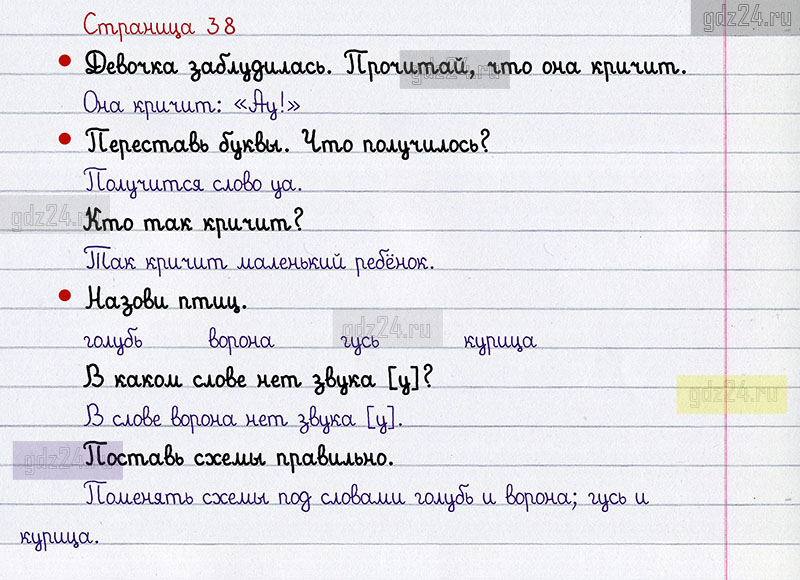 gdz24.ru
Страница 38
• Девочка заблудилась. Прочитай, что она кричит.
gdz24.ru
Она кричит: «Ау!»
• Переставь буквы. Что получилось?
Получится слово уа.
gdz24.ru
Кто так кричит?
Так кричит маленький ребёнок.
• Назови птиц.
gdz24.ru
голубь ворона гусь курица
В каком слове нет звука [у]?
gdz24.ru
В слове ворона нет звука [у].
gdz24.ru
Поставь схемы правильно.
Поменять схемы под словами голубь и ворона; гусь и
курица.